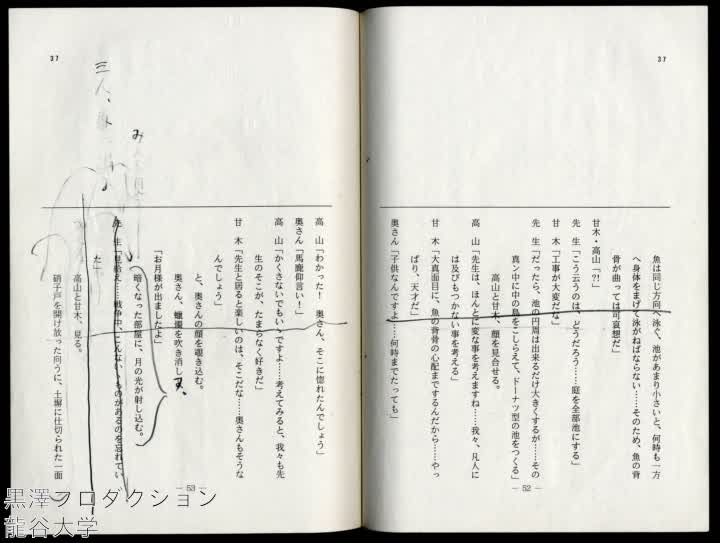 37
魚は同じ方向へ泳ぐ、池があまり小さいと、何時も一方
へ身体をまげて泳がねばならない……そのため、魚の背
骨が曲っては可哀想だ」
甘木・高山「?!」
先　生「こう云うのは、どうだろう……庭を全部池にする」
甘　木「工事が大変だな」
先　生「だったら、池の円周は出来るだけ大きくするが……その
真ン中に中の島をこしらえて、ドーナツ型の池をつくる」
高山と甘木、顔を見合せる。
高　山「先生は、ほんとに変な事を考えますね……我々、凡人に
は及びもつかない事を考える」
甘　木「大真面目に、魚の背骨の心配までするんだから……やっ
ぱり、天才だ」
奥さん「子供なんですよ……何時までたっても」
― 52 ―
37
高　山「わかった！　奥さん、そこに惚れたんでしょう」
奥さん「馬鹿仰言い！」
高　山「かくさないでもいゝですよ……考えてみると、我々も先
生のそこが、たまらなく好きだ」
甘　木「先生と居ると楽しいのは、そこだな……奥さんもそうな
んでしょう」
と、奥さんの顔を覗き込む。
奥さん、蠟燭を吹き消し
「お月様が出ましたよ」
暗くなった部屋に、月の光が射し込む。
先　生「見給え……戦争中、こんないゝものがあるのを忘れてい
た」
高山と甘木、見る。
硝子戸を開け放った向うに、土塀に仕切られた一面
― 53 ―
三人、
み
黒澤プロダクション
龍谷大学